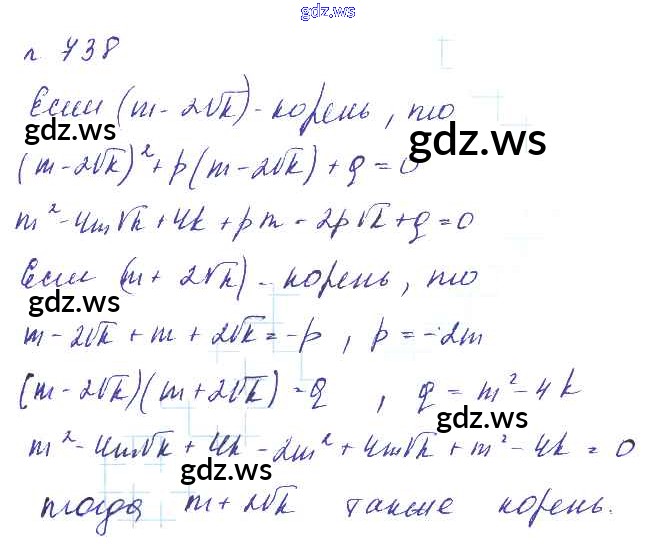 gdz.ws
n. 738
Если (m - 2√k) - корень, то
gdz.ws gdz.ws
(m - 2√k)² + p(m - 2√k) + q = 0
m² - 4m√k + 4k + pm - 2p√k + q = 0
Если (m + 2√k) - корень, то
gdz.ws
m - 2√k + m + 2√k = -p, p = -2m
(m - 2√k)(m + 2√k) = q, q = m² - 4k
gdz.ws
m² - 4m√k + 4k - 2m² + 4m√k + m² - 4k = 0
gdz.ws
тогда m + 2√k также корень.
gdz.ws